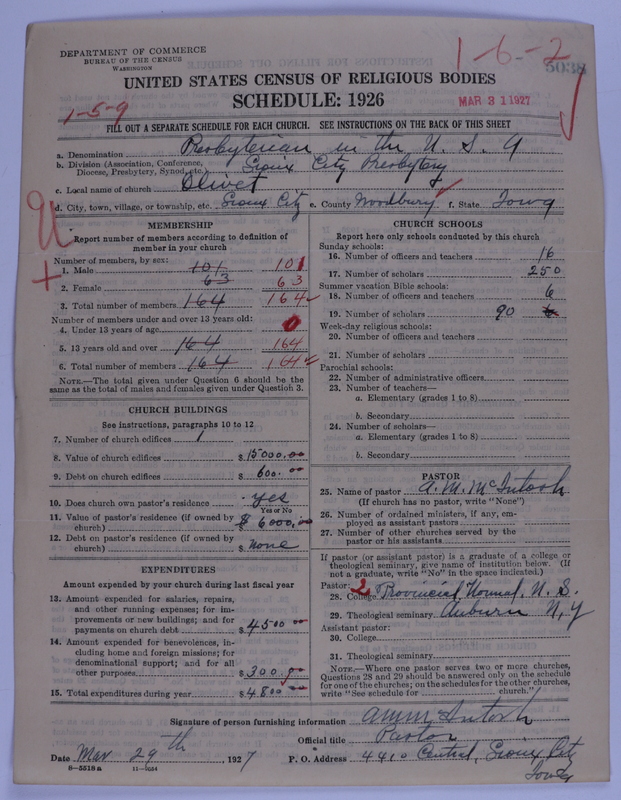 DEPARTMENT OF COMMERCE
BUREAU OF THE CENSUS
WASHINGTON
1-6-2
5038
UNITED STATES CENSUS OF RELIGIOUS BODIES
SCHEDULE: 1926
MAR 31 1927
1-5-9
FILL OUT A SEPARATE SCHEDULE FOR EACH CHURCH. SEE INSTRUCTIONS ON THE BACK OF THIS SHEET
a. Denomination Presbyterian in the U. S. A
b. Division (Association, Conference, Diocese, Presbytery, Synod, etc.) Sioux City Presbytery
c. Local name of church Olivet
d. City, town, village, or township, etc. Sioux City e. County Woodbury f. State Iowa
MEMBERSHIP
Report number of members according to definition of
member in your church
Number of members, by sex:
1. Male 101 101
2. Female 63 63
3. Total number of members 164 164
Number of members under and over 13 years old:
4. Under 13 years of age 0
5. 13 years old and over 164 164
6. Total number of members 164 164
NOTE.—The total given under Question 6 should be the
same as the total of males and females given under Question 3.
CHURCH BUILDINGS
See instructions, paragraphs 10 to 12
7. Number of church edifices 1
8. Value of church edifices $15000.00
9. Debt on church edifices $600.00
10. Does church own pastor's residence yes
Yes or No
11. Value of pastor's residence (if owned by
church) $6000.00
12. Debt on pastor's residence (if owned by
church) $ none
EXPENDITURES
Amount expended by your church during last fiscal year
13. Amount expended for salaries, repairs,
and other running expenses; for im-
provements or new buildings; and for
payments on church debt $4500 00
14. Amount expended for benevolences, in-
cluding home and foreign missions; for
denominational support; and for all
other purposes $300.00
15. Total expenditures during year $4800
CHURCH SCHOOLS
Report here only schools conducted by this church
Sunday schools:
16. Number of officers and teachers 16
17. Number of scholars 250
Summer vacation Bible schools:
18. Number of officers and teachers 6
19. Number of scholars 90
Week-day religious schools:
20. Number of officers and teachers
21. Number of scholars
Parochial schools:
22. Number of administrative officers
23. Number of teachers—
a. Elementary (grades 1 to 8)
b. Secondary
24. Number of scholars—
a. Elementary (grades 1 to 8)
b. Secondary
PASTOR
25. Name of pastor A. M. McIntosh
(If church has no pastor, write "None")
26. Number of ordained ministers, if any, em-
ployed as assistant pastors
27. Number of other churches served by the
pastor or his assistants
If pastor (or assistant pastor) is a graduate of a college or
theological seminary, give name of institution below. (If
not a graduate, write "No" in the space indicated.)
Pastor: 2
28. College Provincial Normal, N. S.
29. Theological seminary Auburn N, Y
Assistant pastor:
30. College
31. Theological seminary
NOTE.—Where one pastor serves two or more churches,
Questions 28 and 29 should be answered only on the schedule
for one of the churches; on the schedules for the other churches,
write "See schedule for church."
Signature of person furnishing information A M McIntosh
Official title Pastor
Date Mar 29th, 1927 P. O. Address 4410 Central, Sioux City
Iowa
8-5518a 11-9084